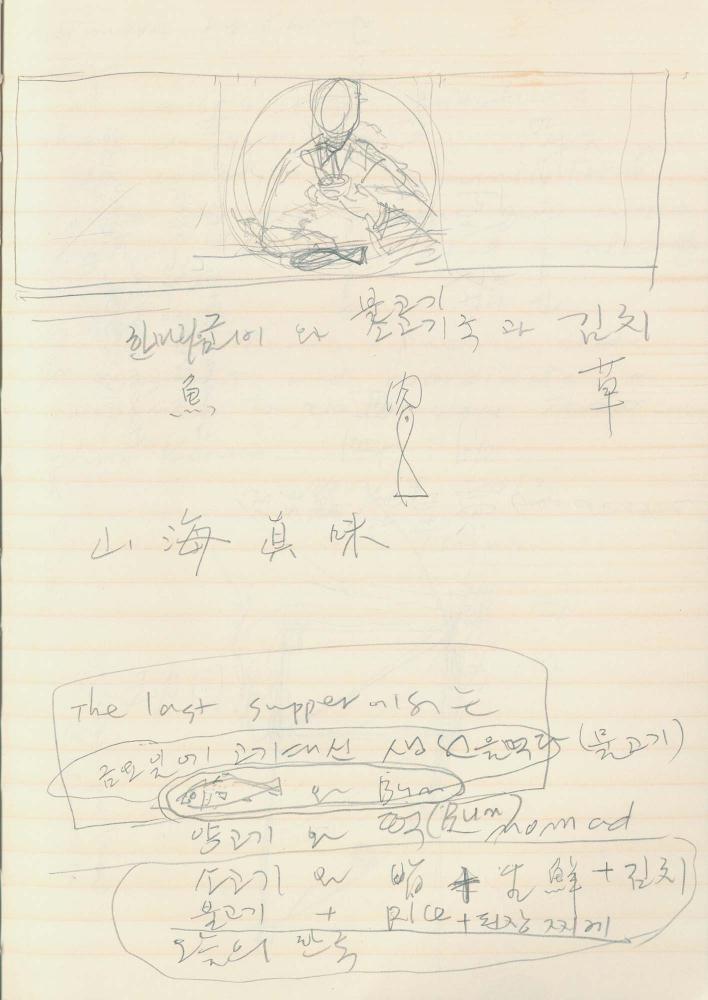 한마리 와 물고기국 과 김치
魚 肉 草
山 海 真 味
The last supper 에서는
금요일에 고기대신 생선을먹다 (물고기)
와 Bun
양고기 와 떡 (Bun) nomad
소고기 와 밥 + 生鮮 + 김치
물고기 + Rice + 된장 찌게
오늘의 만족